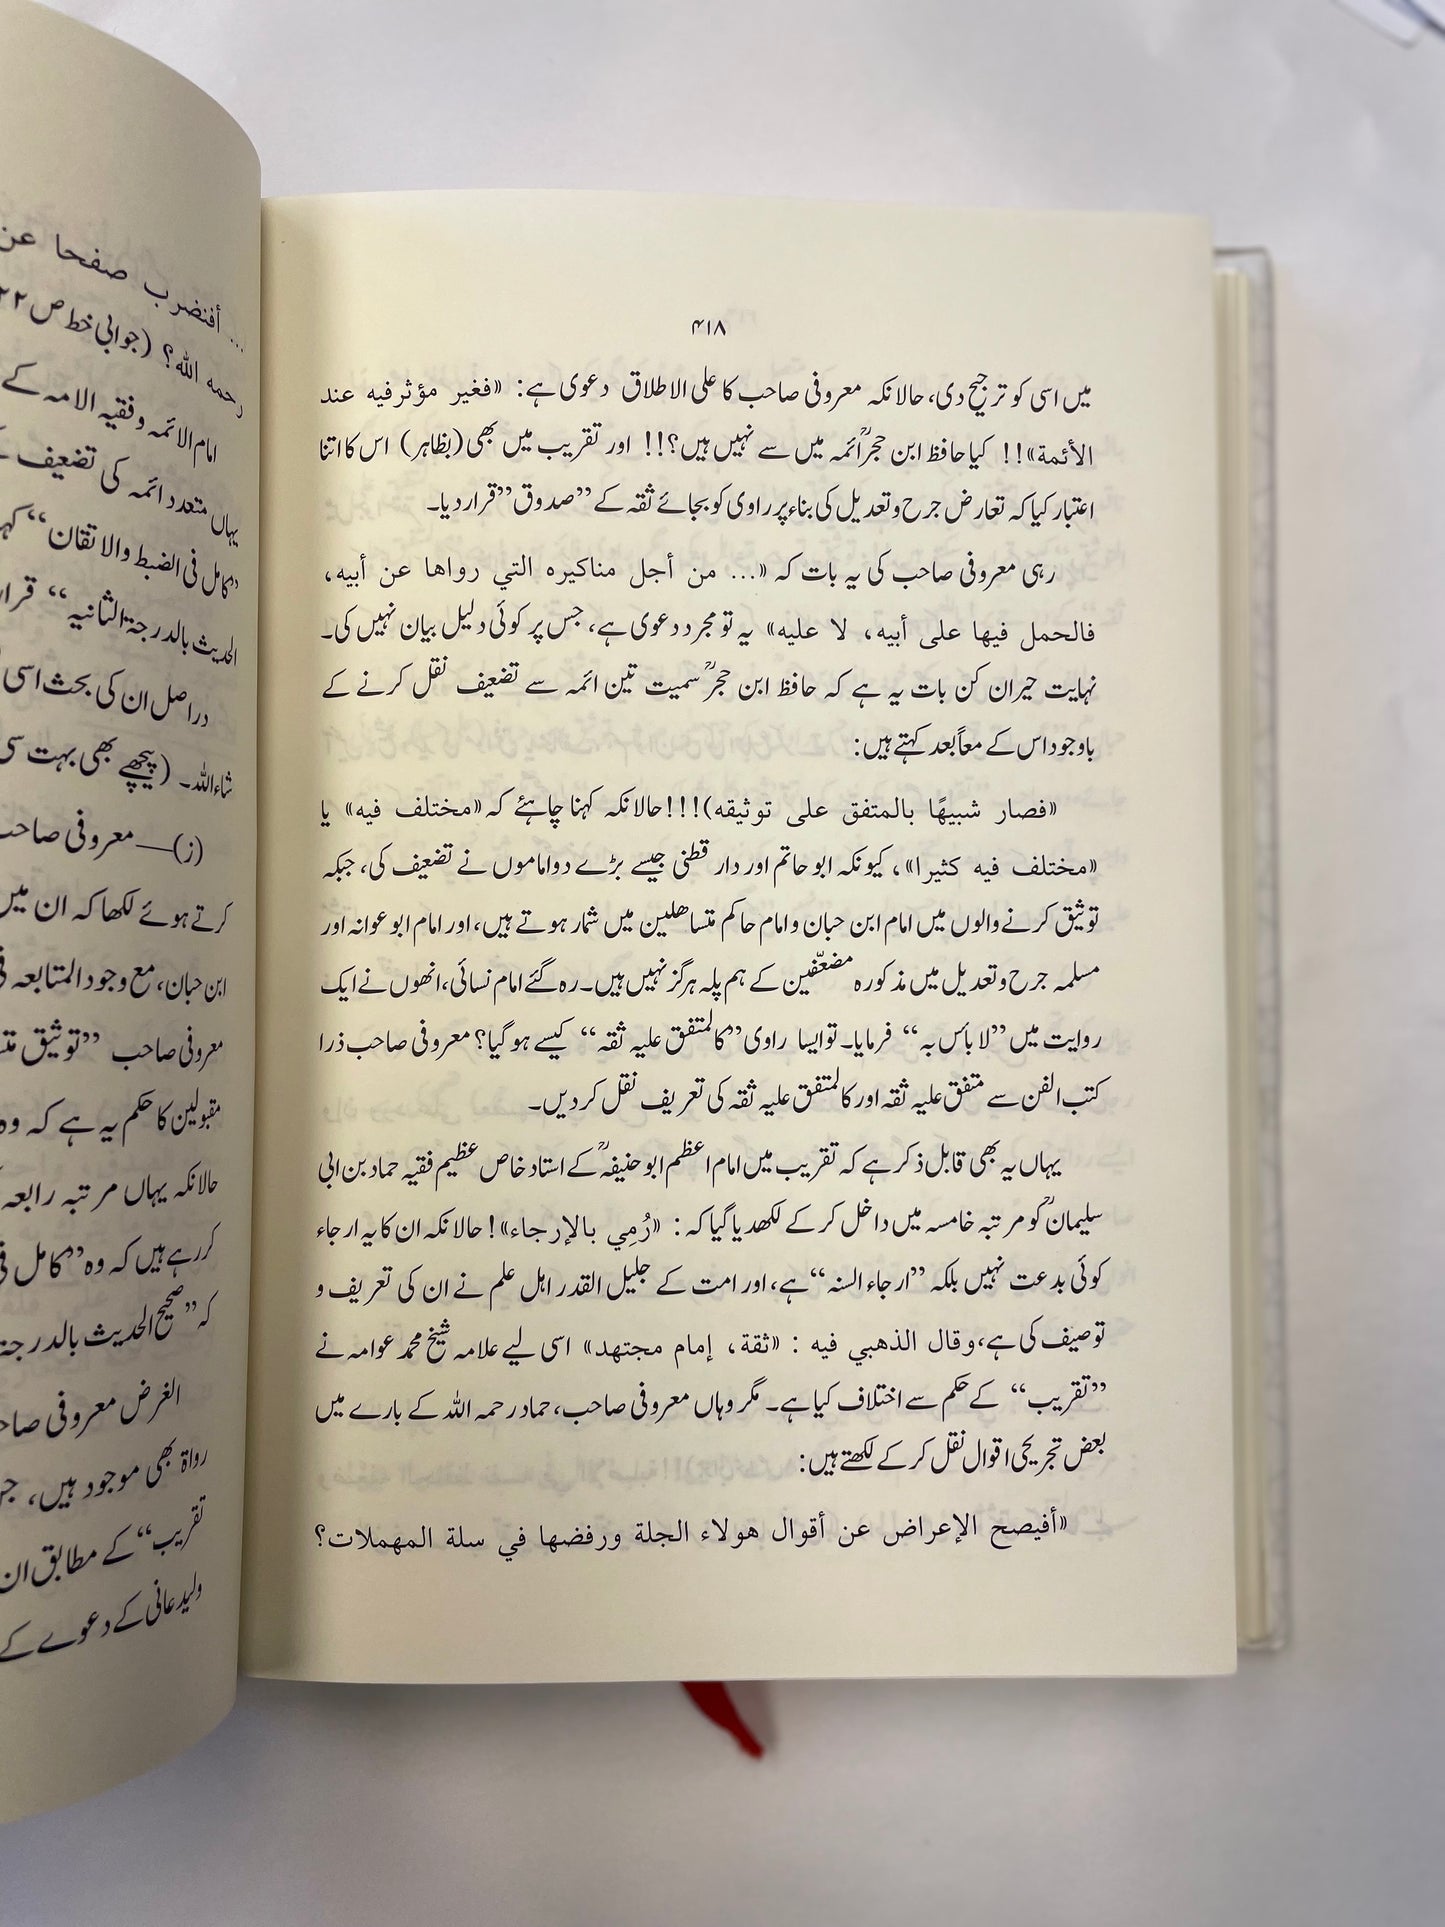 ۴۱۸
میں اسی کو ترجیح دی، حالانکہ معروفی صاحب کا علی الاطلاق دعوی ہے: «فغیر مؤثرفیه عند
الأئمة»!! کیا حافظ ابن حجرؒ ائمہ میں سے نہیں ہیں؟!! اور تقریب میں بھی (بظاہر) اس کا اتنا
اعتبار کیا کہ تعارض جرح و تعدیل کی بناء پر راوی کو بجائے ثقہ کے ”صدوق” قرار دیا۔
رہی معروفی صاحب کی یہ بات کہ «... من أجل مناكيره التي رواها عن أبيه،
فالحمل فيها على أبيه، لا عليه» یہ تو مجرد دعوی ہے، جس پر کوئی دلیل بیان نہیں کی۔
نہایت حیران کن بات یہ ہے کہ حافظ ابن حجرؒ سمیت تین ائمہ سے تضعیف نقل کرنے کے
باوجود اس کے معاً بعد کہتے ہیں:
«فصار شبيهًا بالمتفق على توثيقه)!!! حالانکہ کہنا چاہئے کہ «مختلف فيه» یا
«مختلف فيه كثيرا»، کیونکہ ابو حاتم اور دار قطنی جیسے بڑے دو اماموں نے تضعیف کی، جبکہ
توثیق کرنے والوں میں امام ابن حبان و امام حاکم متساھلین میں شمار ہوتے ہیں، اور امام ابو عوانہ اور
مسلمہ جرح و تعدیل میں مذکورہ مضعّفین کے ہم پلہ ہرگز نہیں ہیں۔ رہ گئے امام نسائی، انھوں نے ایک
روایت میں ”لا بأس بہ“ فرمایا۔ تو ایسا راوی ”کالمتفق علیہ ثقہ“ کیسے ہو گیا؟ معروفی صاحب ذرا
کتب الفن سے متفق علیہ ثقہ اور کالمتفق علیہ ثقہ کی تعریف نقل کر دیں۔
یہاں یہ بھی قابل ذکر ہے کہ تقریب میں امام اعظم ابو حنیفہؒ کے استاد خاص عظیم فقیہ حماد بن ابی
سلیمانؒ کو مرتبہ خامسہ میں داخل کر کے لکھدیا گیا کہ: «رُمِي بالإرجاء»! حالانکہ ان کا یہ ارجاء
کوئی بدعت نہیں بلکہ ”ارجاء السنہ“ ہے، اور امت کے جلیل القدر اہل علم نے ان کی تعریف و
توصیف کی ہے، وقال الذهبي فيه : «ثقة، إمام مجتهد» اسی لیے علامہ شیخ محمد عوامہ نے
”تقریب“ کے حکم سے اختلاف کیا ہے۔ مگر وہاں معروفی صاحب، حماد رحمہ اللہ کے بارے میں
بعض تجریحی اقوال نقل کر کے لکھتے ہیں:
«أفيصح الإعراض عن أقوال هولاء الجلة ورفضها في سلة المهملات؟
... أفنضرب صفحا عن
رحمه الله؟ (جوابی خط ص ۲۲
امام الائمہ و فقیہ الامہ کے
یہاں متعدد ائمہ کی تضعیف
”کامل فی الضبط والاتقان“
الحدیث بالدرجۃ الثانیہ“
دراصل ان کی بحث اسی
شاء اللہ۔ (پیچھے بھی بہت سی
(ز)—معروفی صاحب
کرتے ہوئے لکھا کہ ان میں
ابن حبان، مع وجود المتابعہ
معروفی صاحب ”توثیق
مقبولین کا حکم یہ ہے کہ وہ
حالانکہ یہاں مرتبہ رابعہ
کر رہے ہیں کہ وہ ”کامل
کہ ”صحیح الحدیث بالدرجۃ
الغرض معروفی
رواة بھی موجود ہیں،
تقریب“ کے مطابق ان
ولید عانی کے دعوے کے